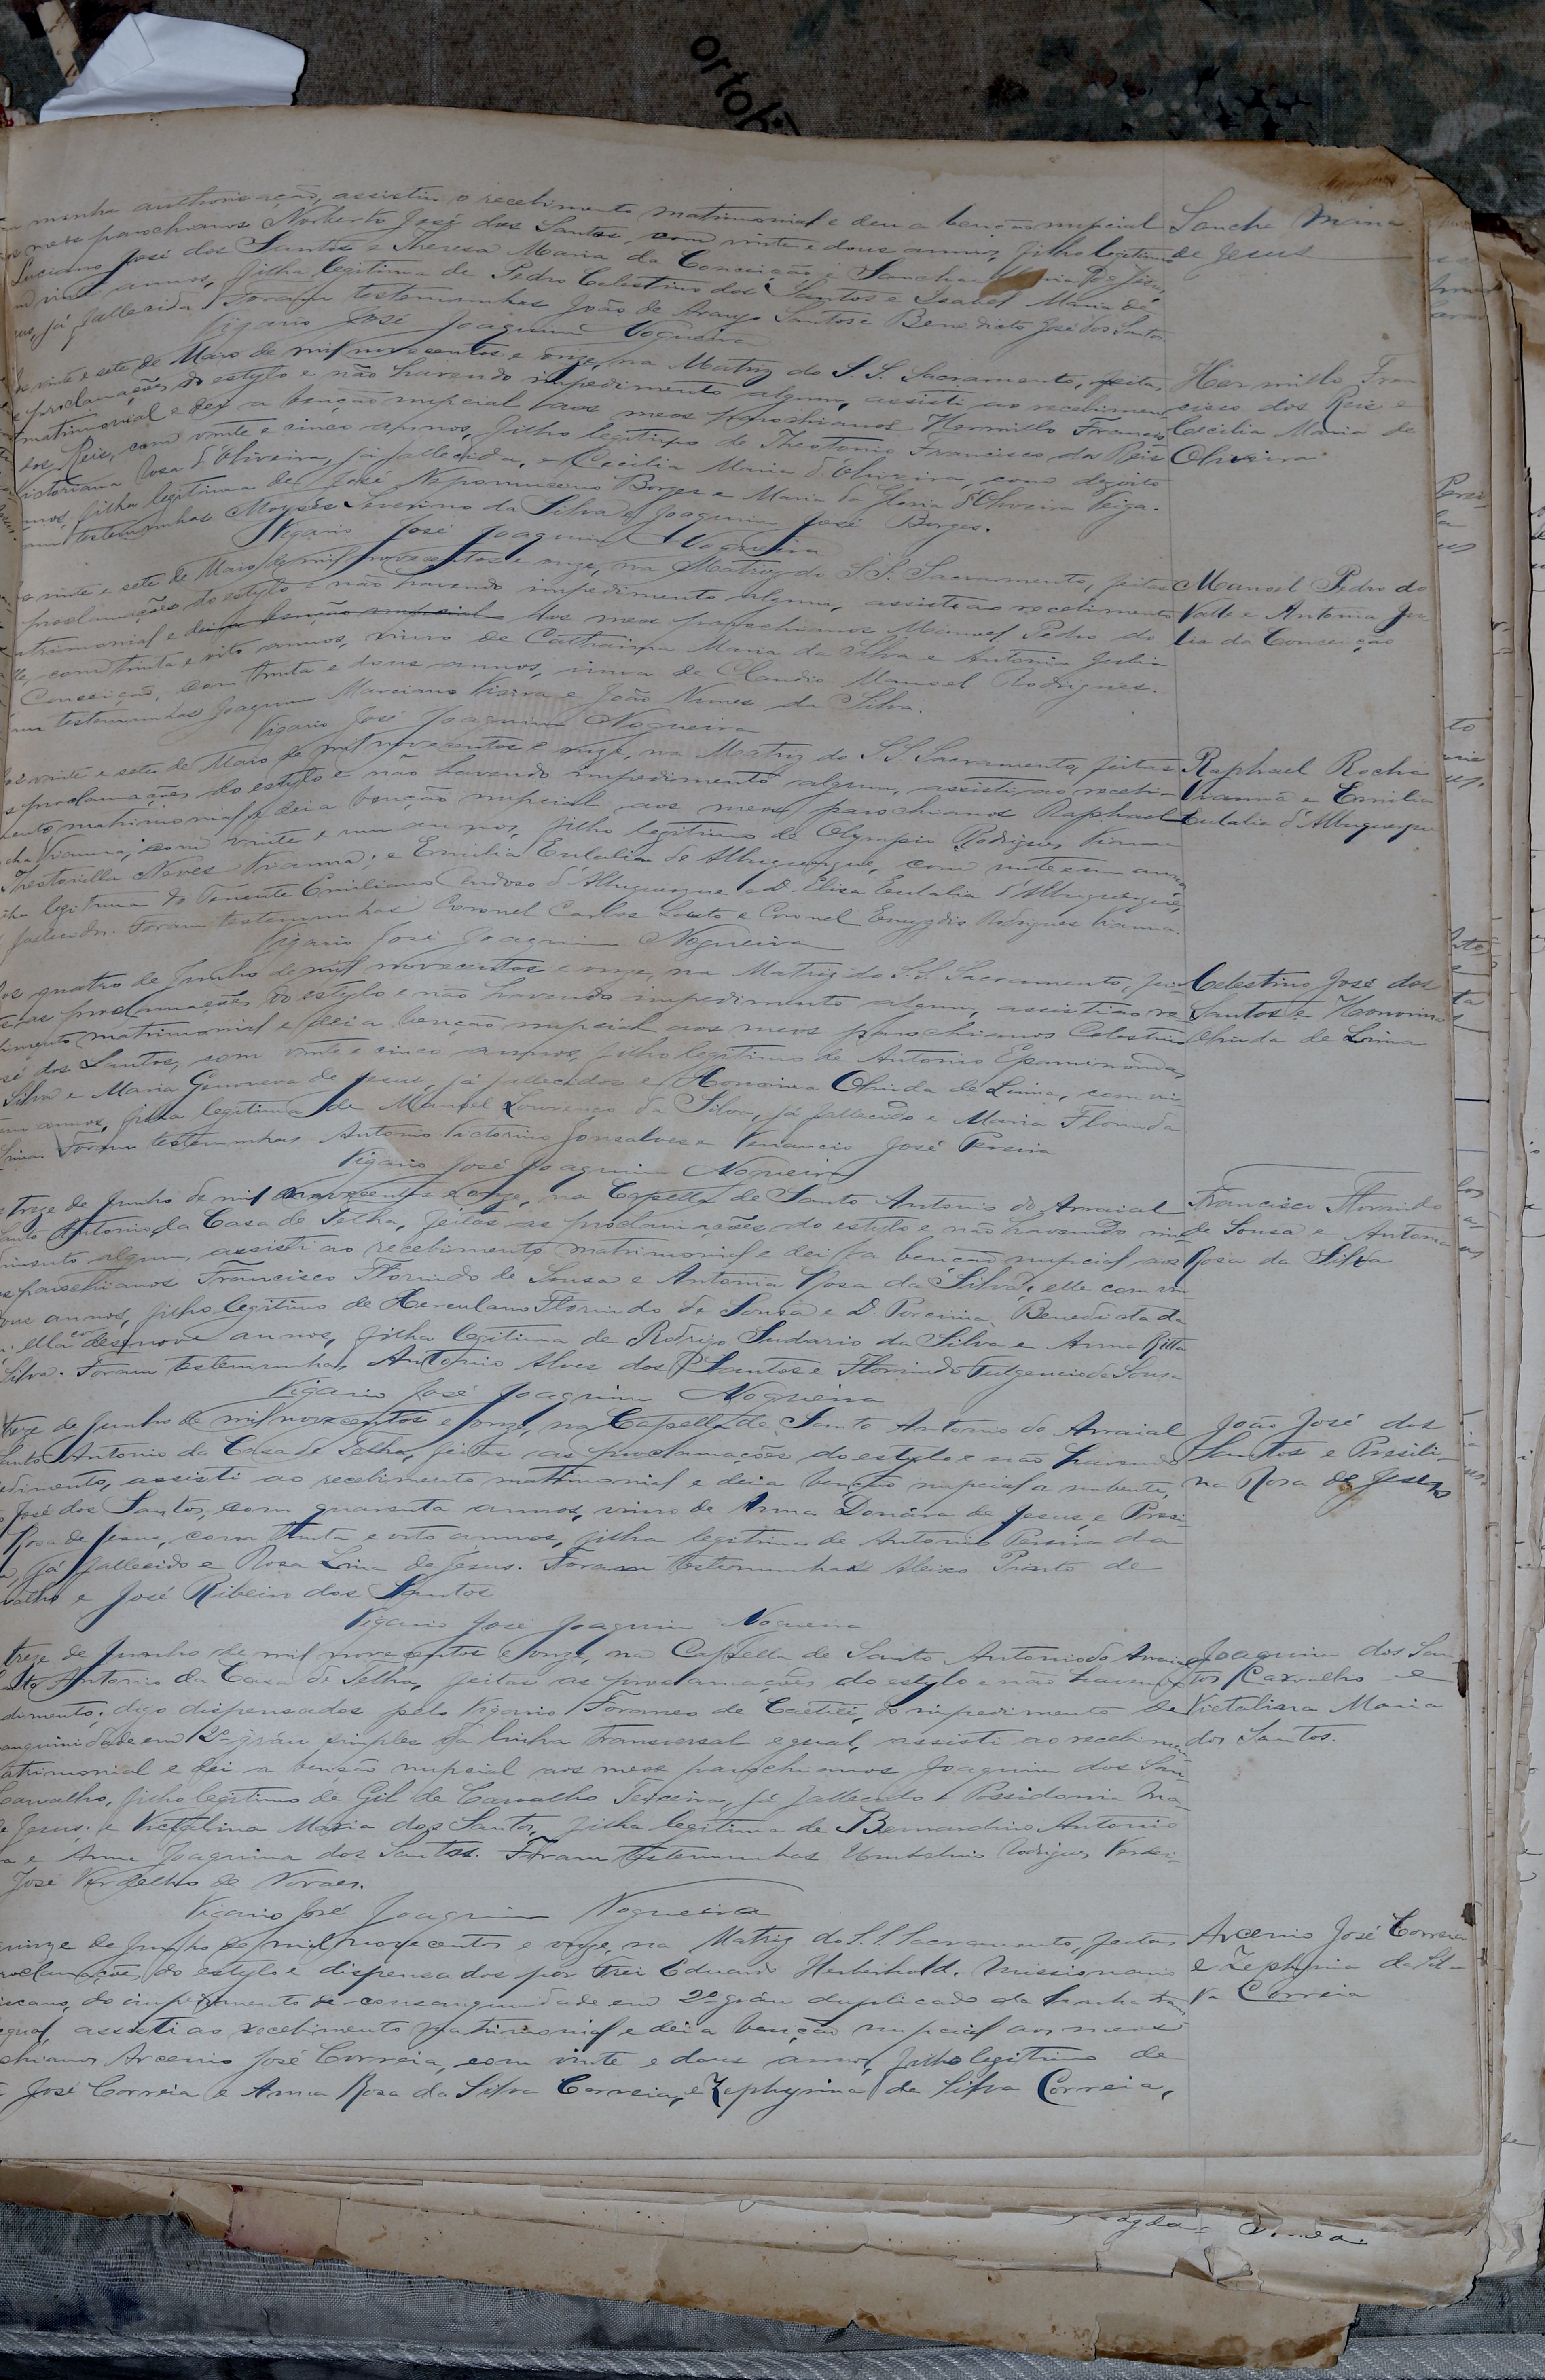 minha authorisação, assistiu o recebimento matrimonial e deu a benção nupcial
meos parochianos Norberto José dos Santos, com vinte e dous annos, filho legitimo
Luciano José dos Santos e Theresa Maria da Conceição e Sancha Maria de Jesus,
vinte annos, filha legitima de Pedro Celestino dos Santos e Isabel Maria de
já fallecida. Foram testemunhas João de Araujo Santos e Benedicto José dos Santos
Vigario José Joaquim Nogueira
Sancha Maria
de Jesus
vinte e sete de Maio de mil novecentos e onze, na Matriz do S.S. Sacramento, feitas
proclamações do estylo e não havendo impedimento algum, assisti ao recebimen
matrimonial e dei a benção nupcial aos meos parochianos Hermillo Francis
dos Reis, com vinte e cinco annos, filho legitimo de Theotonio Francisco dos Reis
Victoriana Rosa d'Oliveira, já fallecida, e Cecilia Maria d'Oliveira, com dezoito
filha legitima de José Nepomuceno Borges e Maria da Gloria d'Oliveira Veiga.
testemunhas Moysés Severino da Silva e Joaquim José Borges.
Vigario José Joaquim Nogueira
Hermillo Fran
cisco dos Reis e
Cecilia Maria de
Oliveira
vinte e sete de Maio de mil novecentos e onze, na Matriz do S.S. Sacramento, feitas
proclamações do estylo e não havendo impedimento algum, assisti ao recebimento
matrimonial e dei a benção nupcial dos meos parochianos Manoel Pedro do
com trinta e oito annos, viuvo de Catharina Maria da Silva e Antonia Julia
Conceição, com trinta e dous annos, viuva de Claudio Manoel Rodrigues.
testemunhas Joaquim Marciano Vieira e João Nunes da Silva.
Vigario José Joaquim Nogueira
Manoel Pedro do
Valle e Antonia Ju
lia da Conceição
vinte e sete de Maio de mil novecentos e onze, na Matriz do S.S. Sacramento, feitas
proclamações do estylo e não havendo impedimento algum, assisti ao recebi-
mento matrimonial e dei a benção nupcial aos meos parochianos Raphael
Rocha Vianna, com vinte e um annos, filho legitimo de Olympio Rodrigues Vianna
Theotonilla Neves Vianna, e Emilia Eulalia de Albuquerque, com vinte e um annos
legitima do Tenente Emiliano Cardoso d'Albuquerque e D. Elisa Eulalia d'Albuquerque,
fallecidos. Foram testemunhas Coronel Carlos Souto e Coronel Emygdio Rodrigues Vianna.
Vigario José Joaquim Nogueira
Raphael Rocha
Vianna e Emilia
Eulalia d'Albuquerque
quatro de Junho de mil novecentos e onze, na Matriz do S.S. Sacramento, fei-
tas as proclamações do estylo e não havendo impedimento algum, assisti ao re
bimento matrimonial e dei a benção nupcial aos meos parochianos Celestino
José dos Santos, com vinte e cinco annos, filho legitimo de Antonio Epaminondas
Silva e Maria Genoveva de Jesus, já fallecidos e Honorina Olinda de Lima, com vin
annos, filha legitima de Manoel Lourenço da Silva, já fallecido e Maria Florinda
Lima. Foram testemunhas Antonio Victorino Gonsalves e Venancio José Pereira
Vigario José Joaquim Nogueira
Celestino José dos
Santos e Honorina
Olinda de Lima
treze de Junho de mil novecentos e onze, na Capella de Santo Antonio do Arraial
Santo Antonio da Casa de Telha, feitas as proclamações do estylo e não havendo im
dimento algum, assisti ao recebimento matrimonial e dei a benção nupcial aos
parochianos Francisco Florindo de Sousa e Antonia Rosa da Silva; elle com vin
annos, filho legitimo de Herculano Florindo de Sousa e D. Porcina Benedicta da
ella com desenove annos, filha legitima de Rodrigo Sudario da Silva e Anna Ritta
Silva. Foram testemunhas Antonio Alves dos Santos e Florindo Fulgencio de Sousa
Vigario José Joaquim Nogueira
Francisco Florindo
de Sousa e Antonia
Rosa da Silva
treze de Junho de mil novecentos e onze, na Capella de Santo Antonio do Arraial
Santo Antonio da Casa de Telha, feitas as proclamações do estylo e não havendo
pedimento, assisti ao recebimento matrimonial e dei a benção nupcial a nubente,
José dos Santos, com quarenta annos, viuvo de Anna Donára de Jesus, e Presi-
Rosa de Jesus, com trinta e oito annos, filha legitima de Antonio Pereira da
já fallecido e Rosa Lina de Jesus. Foram testemunhas Aleixo Pinto de
valho e José Ribeiro dos Santos
Vigario José Joaquim Nogueira
João José dos
Santos e Presili-
na Rosa de Jesus
treze de Junho de mil novecentos e onze, na Capella de Santo Antonio do Arraial
Santo Antonio da Casa de Telha, feitas as proclamações do estylo e não havendo
dimento, digo dispensados pelo Vigario Foraneo de Caetité, do impedimento de
sanguinidade em 2º gráu simples da linha transversal egual, assisti ao recebimen
matrimonial e dei a benção nupcial aos meos parochianos Joaquim dos San-
Carvalho, filho legitimo de Gil de Carvalho Teixeira, já fallecido e Possidonia Ma-
de Jesus; e Victalina Maria dos Santos, filha legitima de Bernardino Antonio
e Anna Joaquina dos Santos. Foram testemunhas Umbelino Rodrigues
José Vergelho de Novaes.
Vigario José Joaquim Nogueira
Joaquim dos San-
tos Carvalho e
Victalina Maria
dos Santos.
quinze de Junho de mil novecentos e onze, na Matriz do S.S. Sacramento, feitas
proclamações do estylo e dispensados por Frei Eduardo Herberhold, Missionario
ciscano, do impedimento de consanguinidade em 2º gráu duplicado da linha trans
egual, assisti ao recebimento matrimonial e dei a benção nupcial aos meos
chianos Arcenio José Correia, com vinte e dous annos, filho legitimo de
José Correia e Anna Rosa da Silva Correia, e Zephyrina da Silva Correia,
Arcenio José Correia
e Zephyrina da Sil-
va Correia